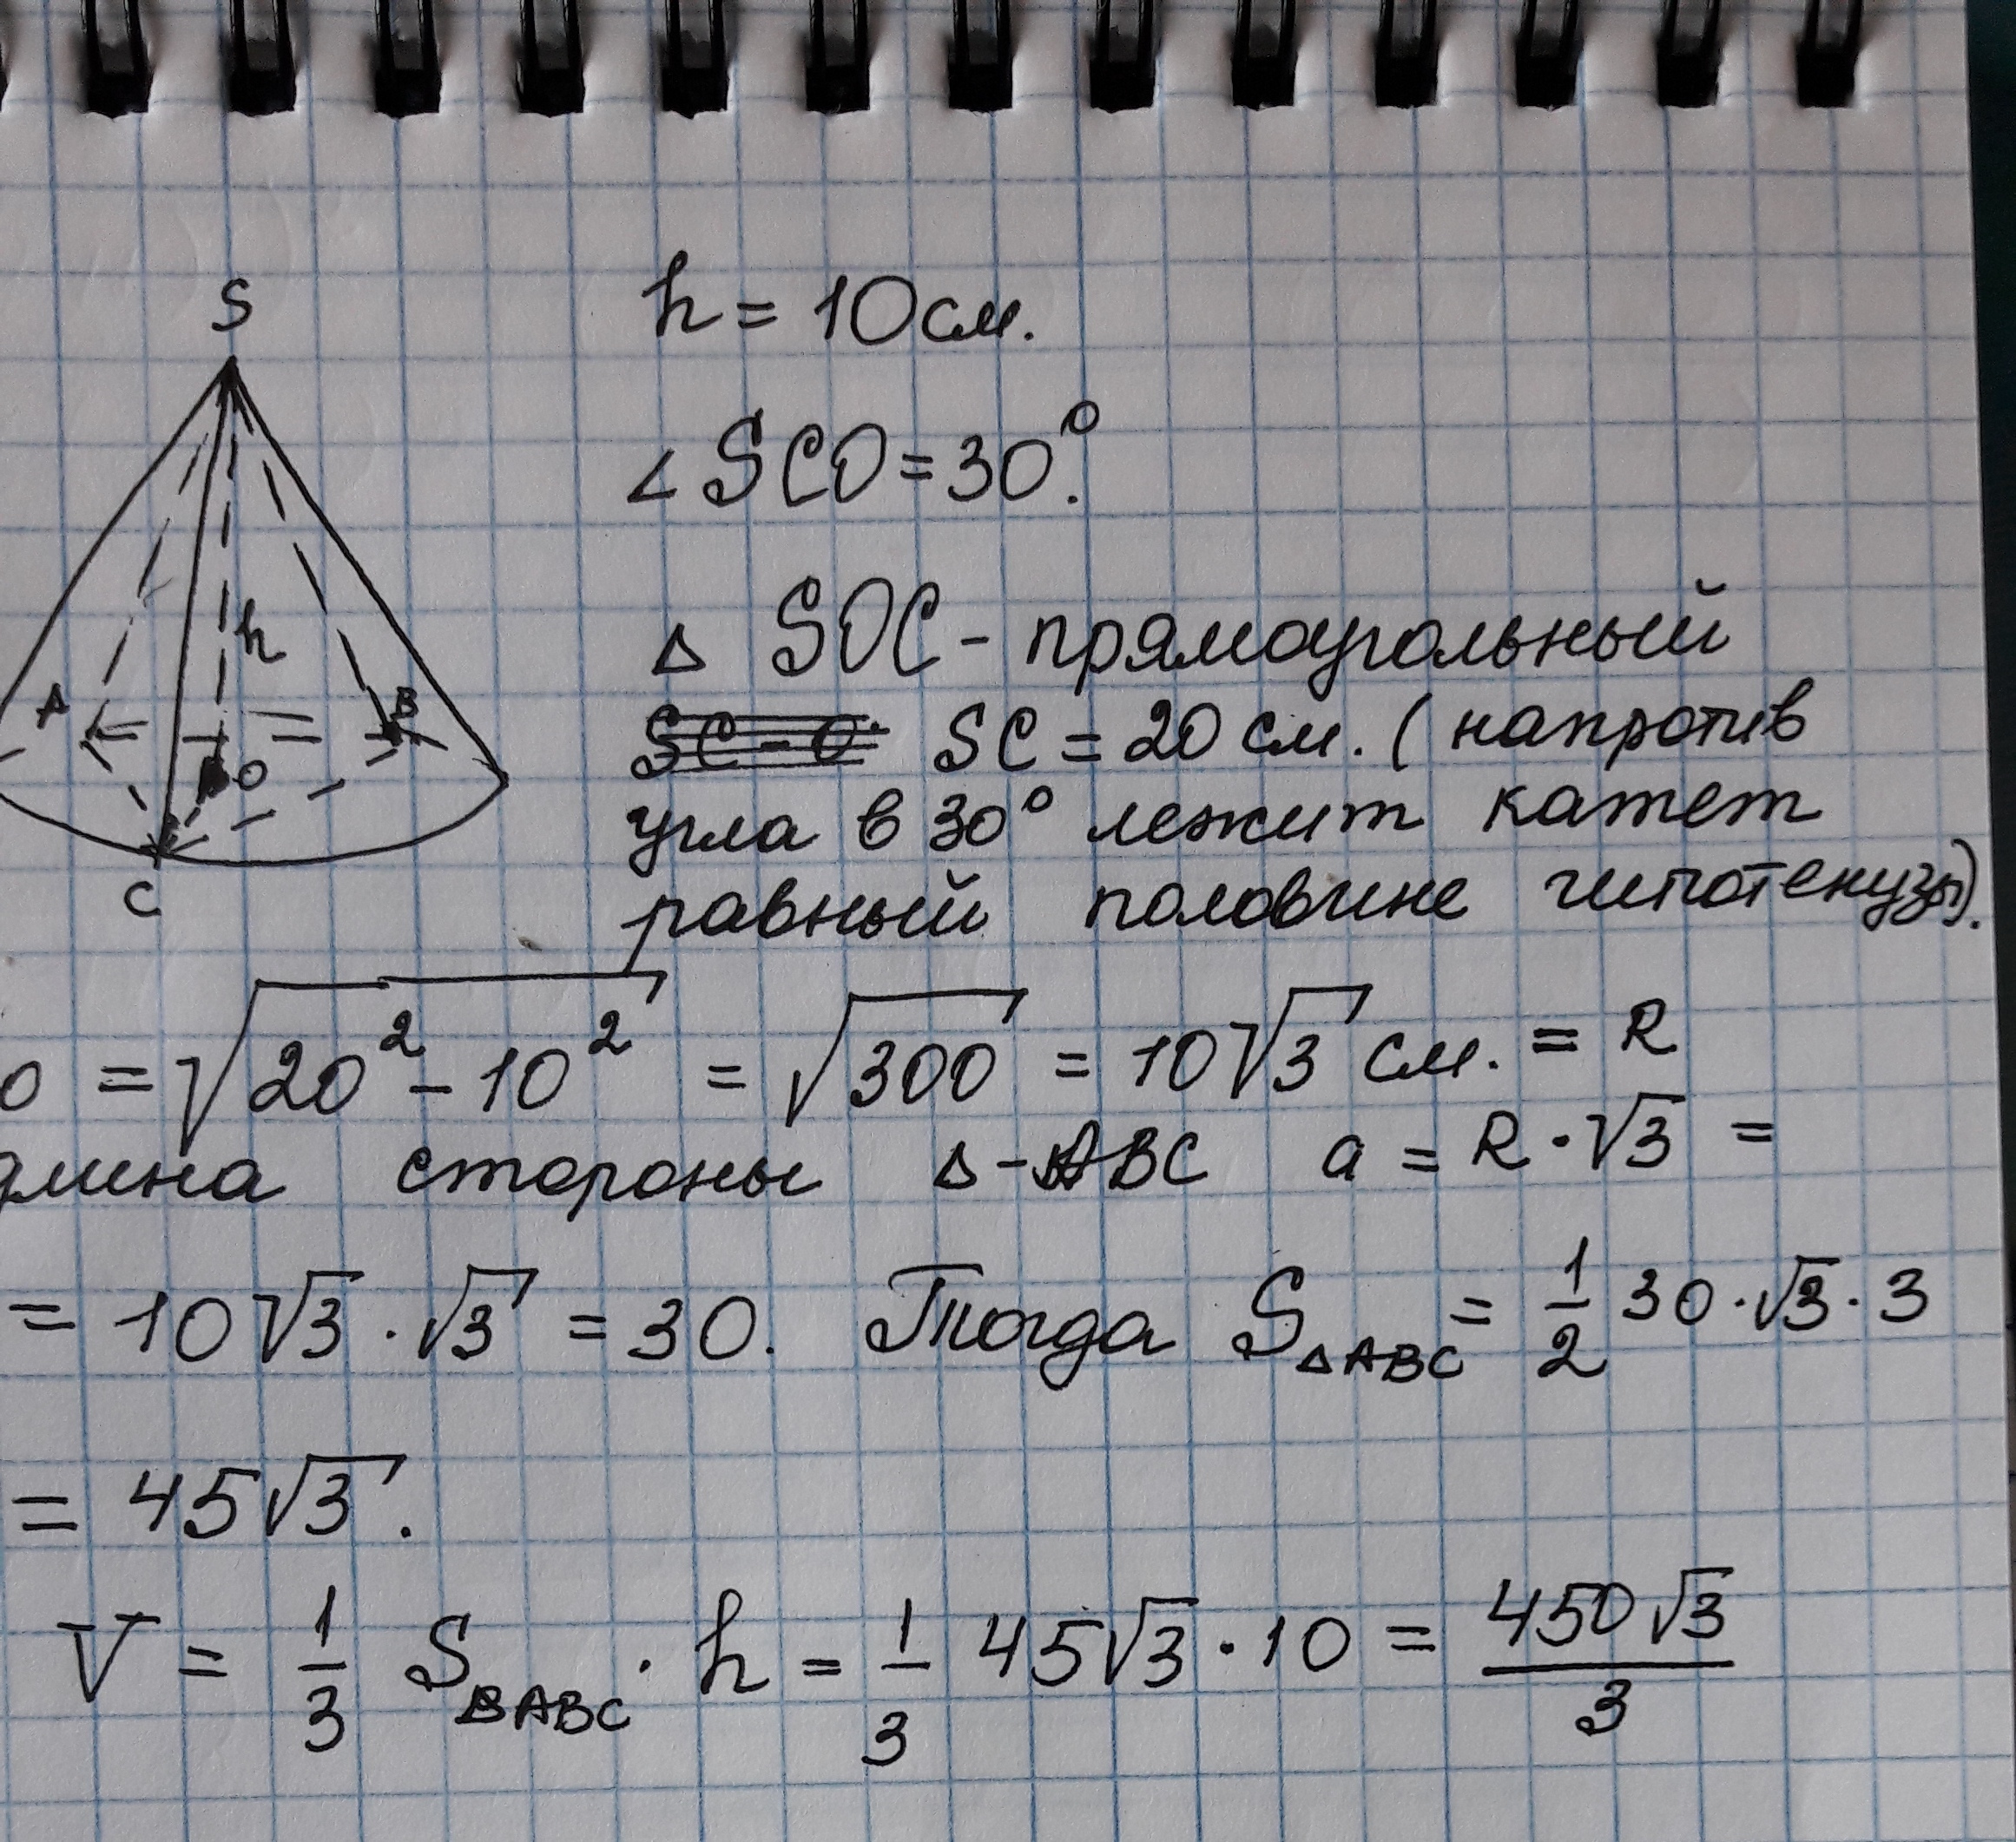 S
h = 10 см.
∠ SCO = 30°.
Δ SOC - прямоугольный
h
A
B
O
C
SC - O SC = 20 см. (напротив
угла в 30° лежит катет
равный половине гипотенузы).
O = √(20² - 10²) = √300 = 10√3 см. = R
длина стороны Δ-ABC a = R · √3 =
= 10√3 · √3 = 30. Тогда S ΔABC = 1/2 30 · √3 · 3
= 45√3.
V = 1/3 S ΔABC · h = 1/3 45√3 · 10 = 450√3/3